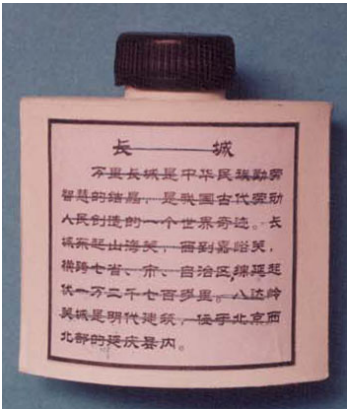 长 城
万里长城是中华民族勤劳
智慧的结晶，是我国古代劳动
人民创造的一个世界奇迹。长
城东起山海关，西到嘉峪关，
横跨七省、市、自治区，绵延起
伏一万二千七百多里。八达岭
关城是明代建筑，位于北京西
北部的延庆县内。